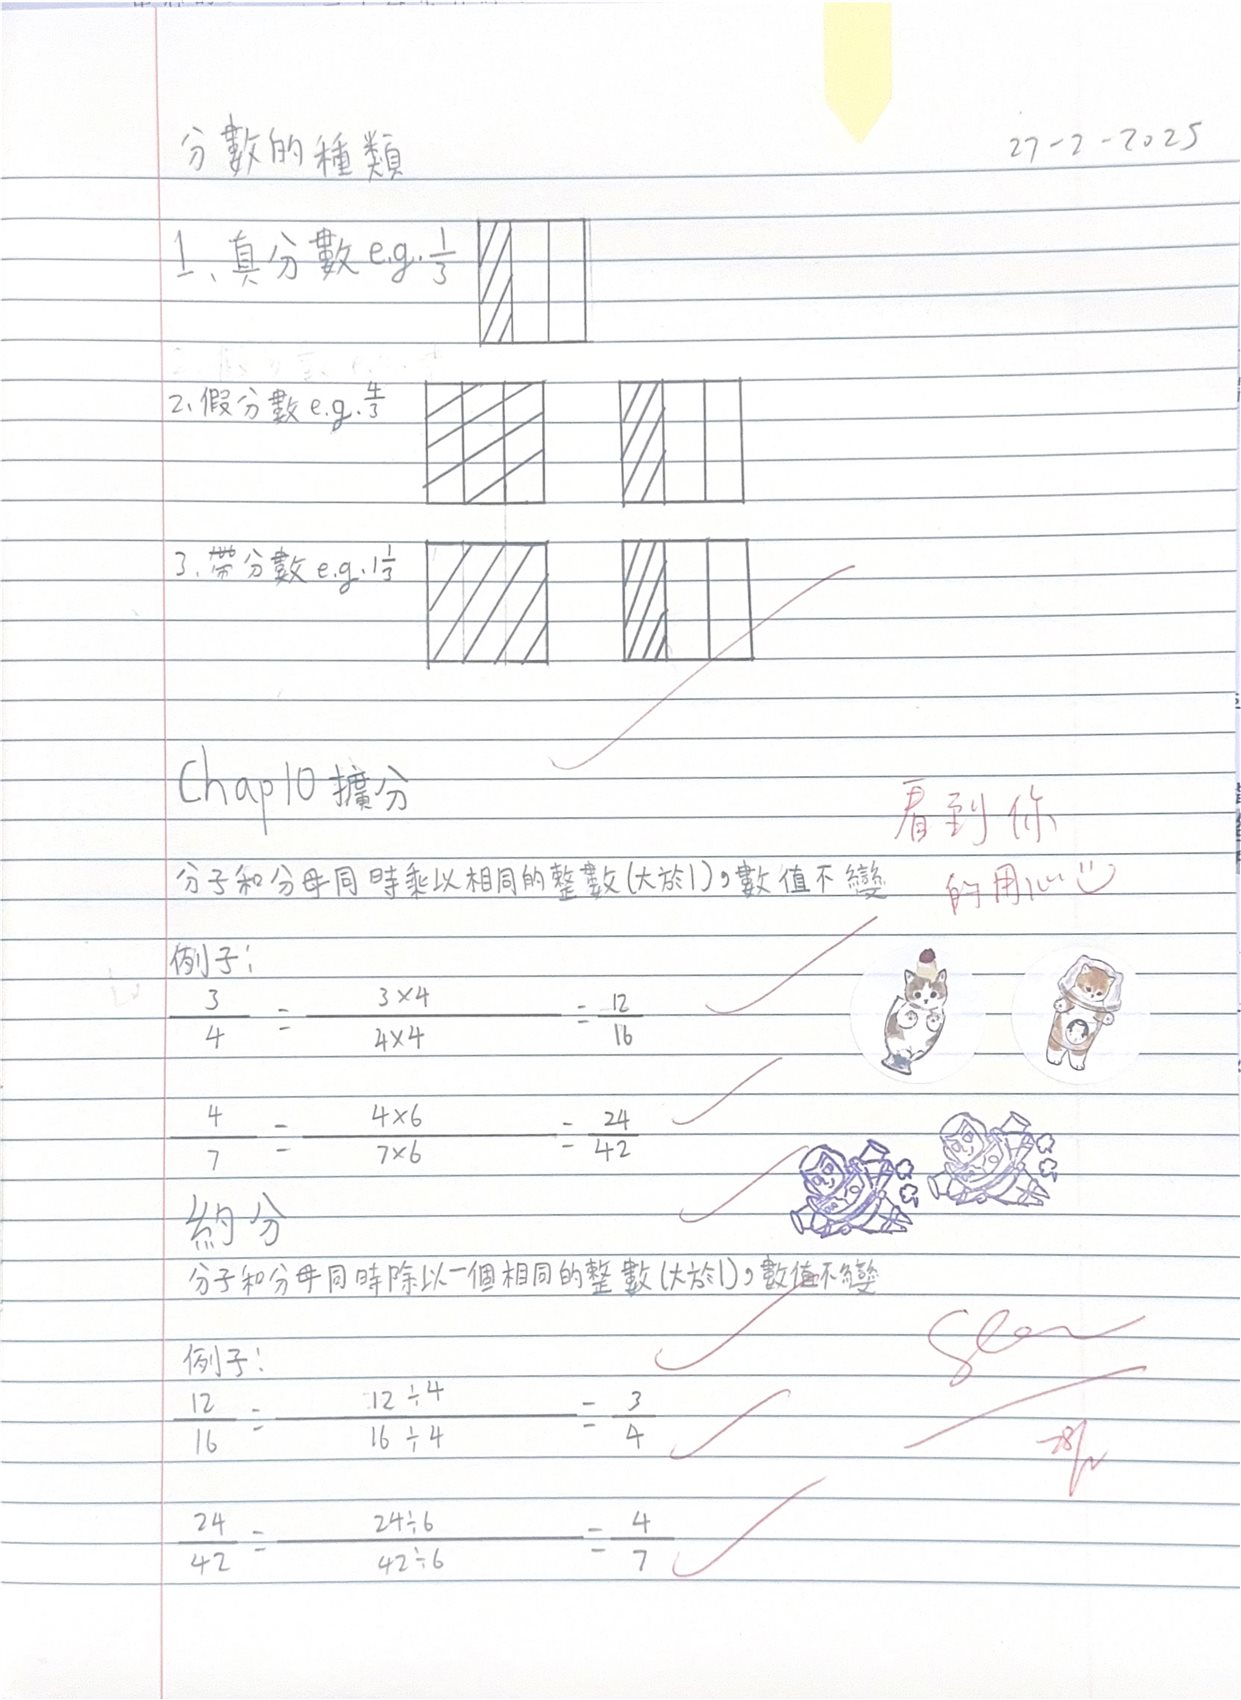 分數的種類
27-2-2025
1、真分數 e.g. 1/3
2、假分數 e.g. 4/3
3、帶分數 e.g. 1 1/3
Chap 10 擴分
看到你
的用心
分子和分母同時乘以相同的整數(大於1),數值不變
例子:
3/4 = 3×4/4×4 = 12/16
4/7 = 4×6/7×6 = 24/42
約分
分子和分母同時除以一個相同的整數(大於1),數值不變
例子:
12/16 = 12÷4/16÷4 = 3/4
24/42 = 24÷6/42÷6 = 4/7
28/2